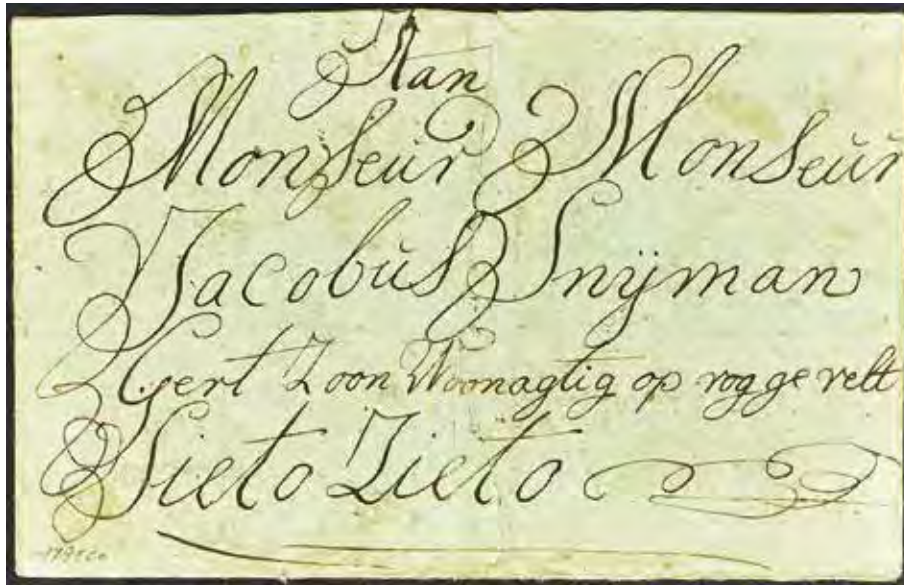 Aan
Monseúr Monseúr
Jacobús Snÿman
Gert Zoon Woonagtig op rogge velt
Sieto Zieto